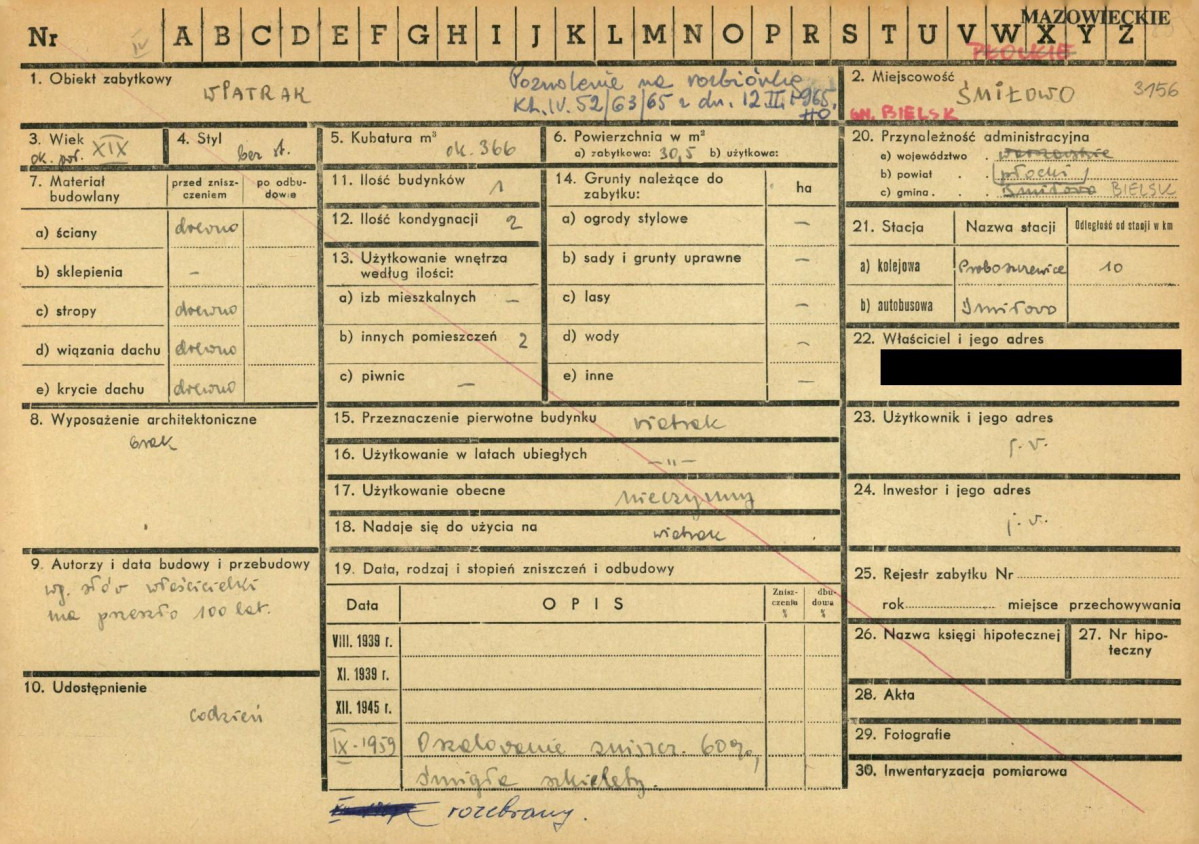 MAZOWIECKIE
Nr IV A B C D E F G H I J K L M N O P R S T U V W X Y Z
PŁOCKIE
1. Obiekt zabytkowy
WIATRAK
Pozwolenie na rozbiórkę
Kl. IV. 52/63/65 z dn. 12 III 1965.
2. Miejscowość
ŚMIŁOWO 3156
GM. BIELSK
3. Wiek
ok. poł. XIX
4. Styl
bez st.
5. Kubatura m³
ok. 366
6. Powierzchnia w m²
a) zabytkowa: 30,5 b) użytkowa:
20. Przynależność administracyjna
a) województwo . warszawskie
b) powiat . . płocki
c) gmina . . Śmiłowo BIELSK
7. Materiał budowlany
przed zniszczeniem
po odbudowie
a) ściany drewno
b) sklepienia –
c) stropy drewno
d) wiązania dachu drewno
e) krycie dachu drewno
11. Ilość budynków 1
12. Ilość kondygnacji 2
13. Użytkowanie wnętrza
według ilości:
a) izb mieszkalnych –
b) innych pomieszczeń 2
c) piwnic –
14. Grunty należące do
zabytku: ha
a) ogrody stylowe –
b) sady i grunty uprawne –
c) lasy –
d) wody –
e) inne –
21. Stacja Nazwa stacji Odległość od stacji w km
a) kolejowa Proboszczewice 10
b) autobusowa Śmiłowo
22. Właściciel i jego adres
8. Wyposażenie architektoniczne
brak
15. Przeznaczenie pierwotne budynku wiatrak
16. Użytkowanie w latach ubiegłych –"–
17. Użytkowanie obecne nieczynny
18. Nadaje się do użycia na wiatrak
23. Użytkownik i jego adres
j. w.
24. Inwestor i jego adres
j. w.
9. Autorzy i data budowy i przebudowy
wg. słów właścicielki
ma przeszło 100 lat.
19. Data, rodzaj i stopień zniszczeń i odbudowy
Data OPIS Zniszczenia % dbudowa %
VIII. 1939 r.
XI. 1939 r.
XII. 1945 r.
IX - 1959 Oszalowanie zniszcz. 60%,
śmigła szkielety.
rozebrany.
25. Rejestr zabytku Nr
rok miejsce przechowywania
26. Nazwa księgi hipotecznej
27. Nr hipoteczny
10. Udostępnienie
codzień
28. Akta
29. Fotografie
30. Inwentaryzacja pomiarowa